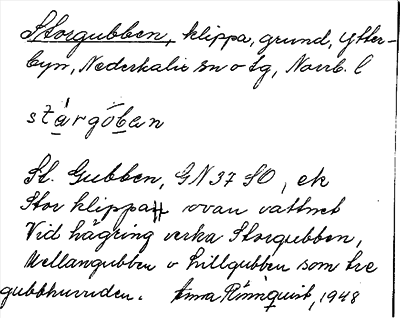 Storgubben, klippa, grund, Ytter-
byn, Nederkalix sn o tg, Norrb. l
stárgóban
St. Gubben, GN 37 SO, ek
Stor klippa ovan vattnet
Vid hägring verka Storgubben,
Mellangubben o Lillgubben som tre
gubbhuvuden. Anna Rönnquist, 1948